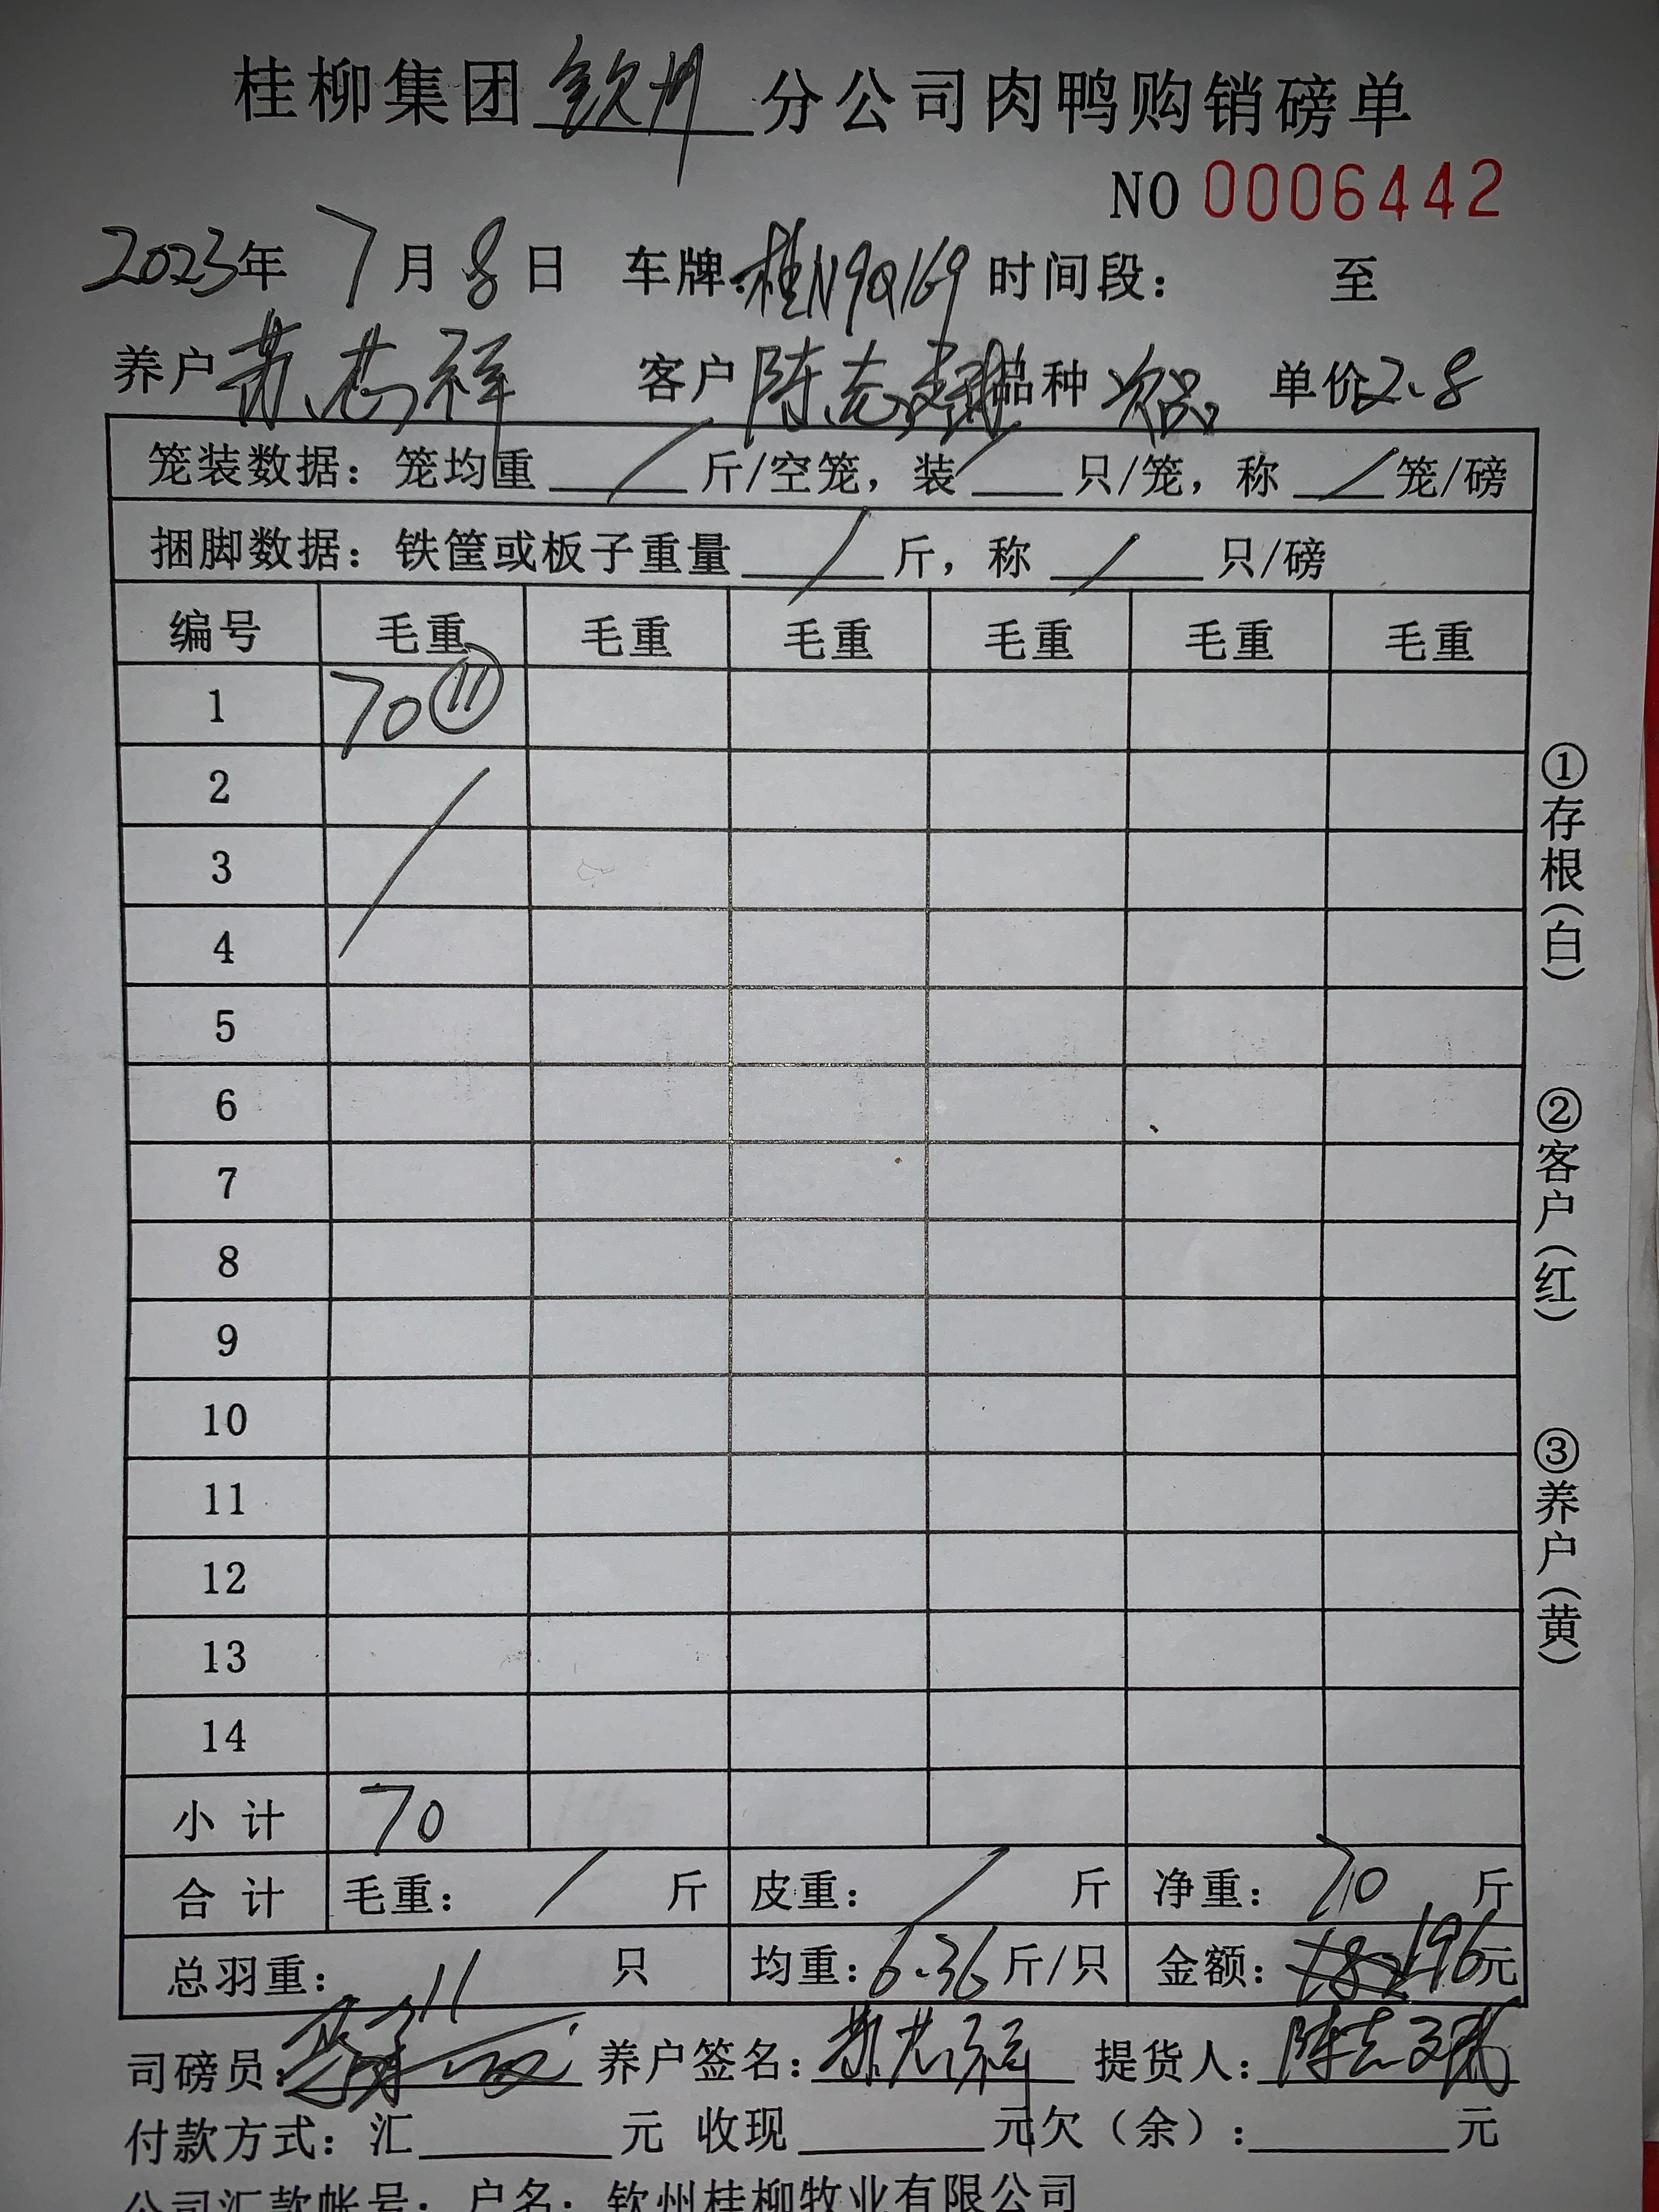 桂柳集团钦州分公司肉鸭购销磅单
NO 0006442
2023年 7月 8日 车牌:桂N9Q169 时间段: 至
养户 苏芯祥 客户 陈志 品种 次品 单价2.8
笼装数据: 笼均重 / 斤/空笼, 装 / 只/笼, 称 / 笼/磅
捆脚数据: 铁筐或板子重量 / 斤, 称 / 只/磅
编号 毛重 毛重 毛重 毛重 毛重 毛重
1 70 ⑪
2
3
4
5
6
7
8
9
10
11
12
13
14
小计 70
合计 毛重: / 斤 皮重: / 斤 净重: 70 斤
总羽重: 11 只 均重: 6.36 斤/只 金额: 196元
司磅员: 养户签名: 苏芯祥 提货人: 陈志
付款方式: 汇 元 收现 元欠(余): 元
公司汇款帐号: 户名: 钦州桂柳牧业有限公司
①存根(白)
②客户(红)
③养户(黄)